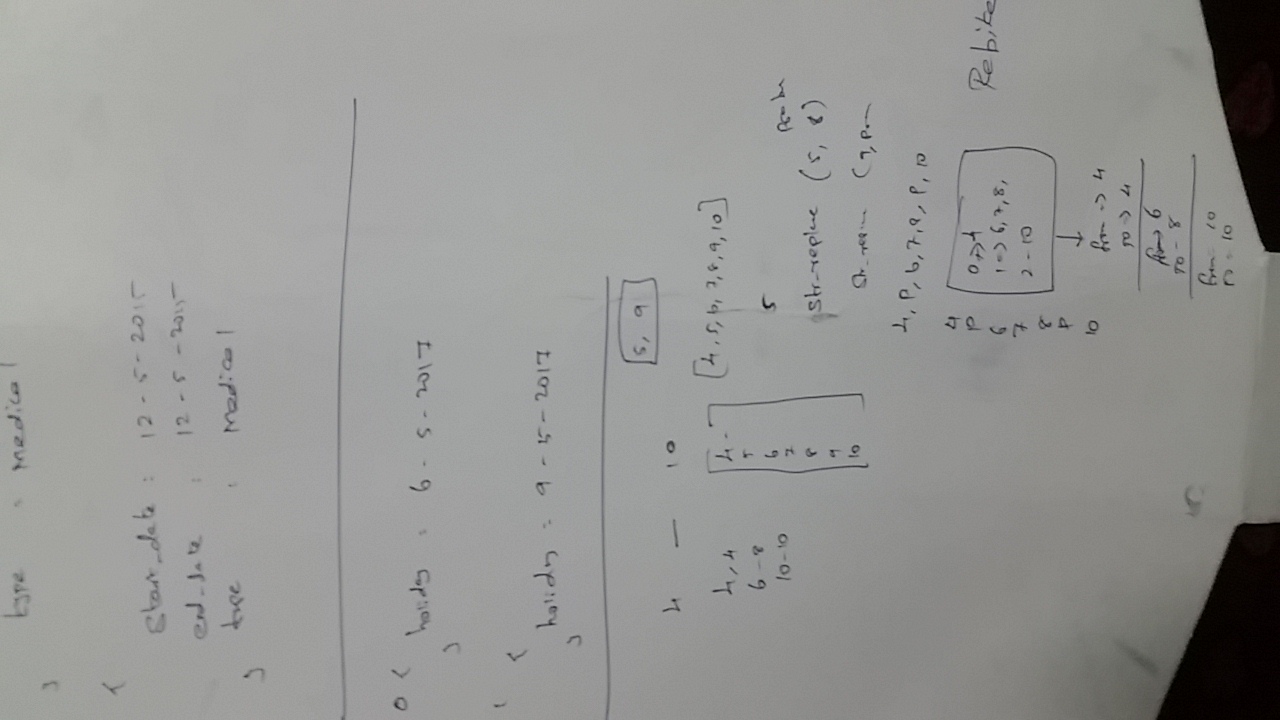 type : Medical
}
{
start_date : 12-5-2015
end_date : 12-5-2015
type : Medical
}
0 {
holiday : 6-5-2017
}
1 {
holiday = 9-5-2017
}
5, 9
4 — 10
4, 4
6-8
10-10
4-
5
6
7
8
9
10
[4,5,6,7,8,9,10]
5
str-replace (5, 8)
(9,
4, P, 6, 7, 8, P, 10
4
P
6
7
8
P
10
0 => 4
1 => 6, 7, 8,
2 - 10
Rebike
from -> 4
TO -> 4
from -> 6
TO - 8
from = 10
TO = 10